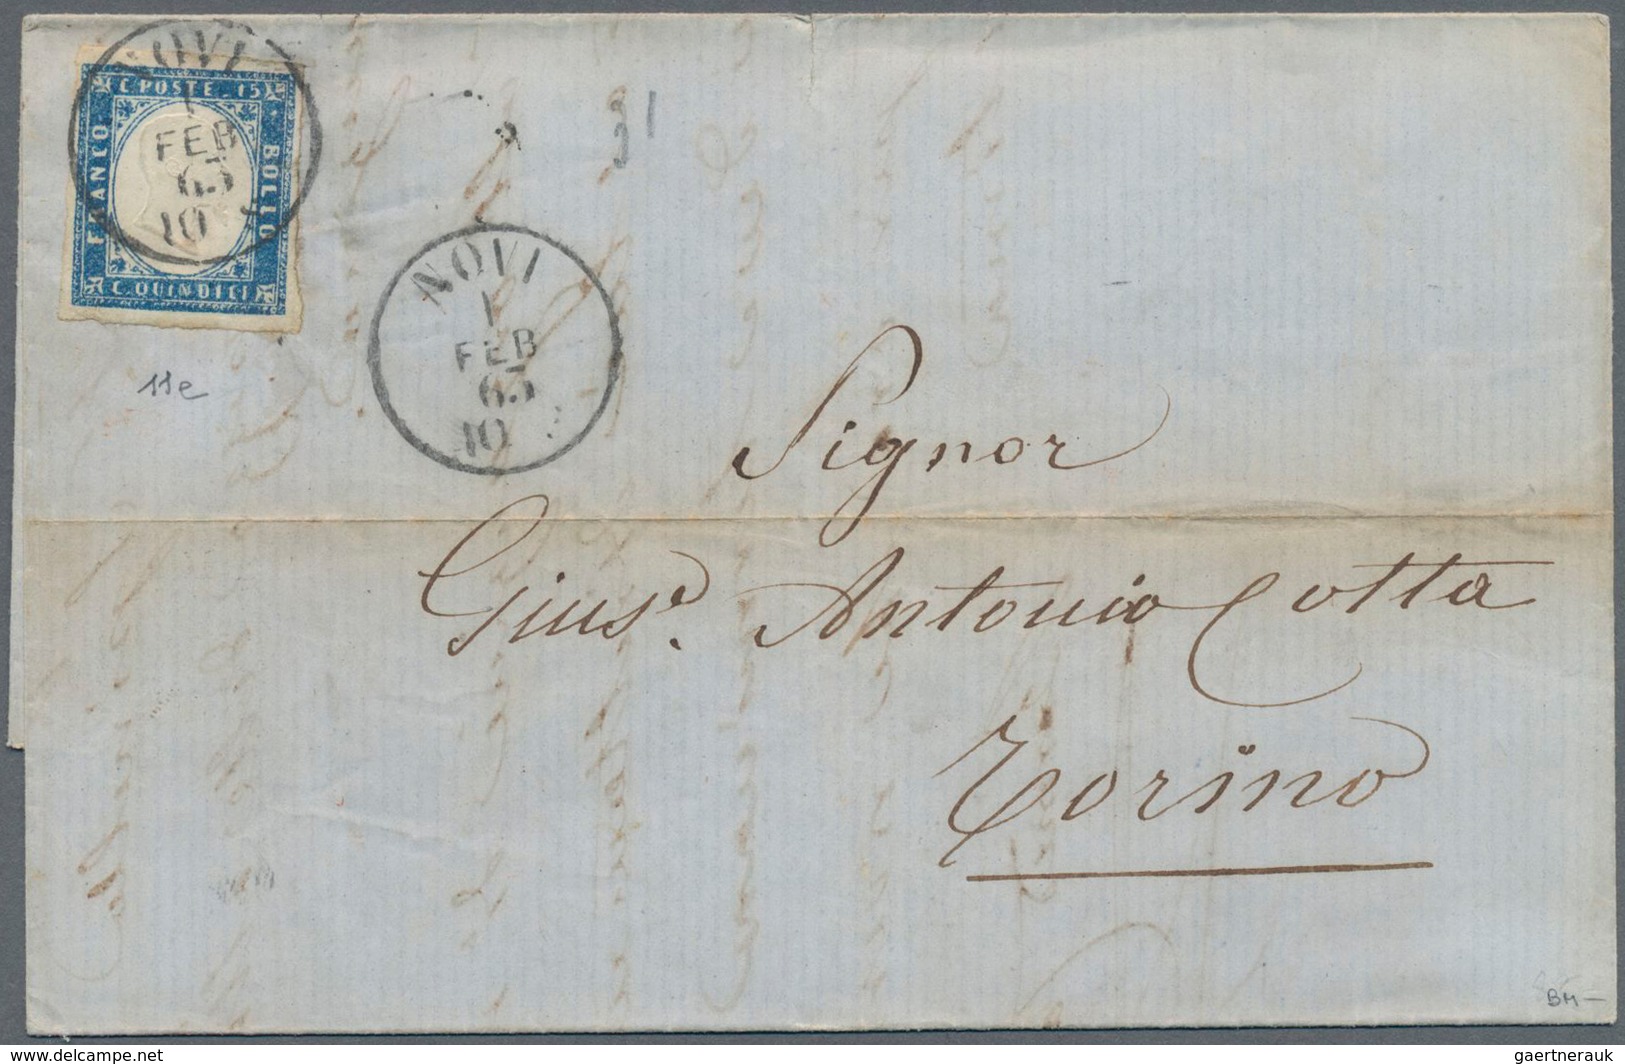 C. POSTE. 15
FRANCO
BOLLO
C. QUINDICI
NOVI
1
FEB
63
10
11e
NOVI
1
FEB
63
10
Signor
Giuse. Antonio Cotta
Torino
BM-
delcampe.com
gaertnerauk